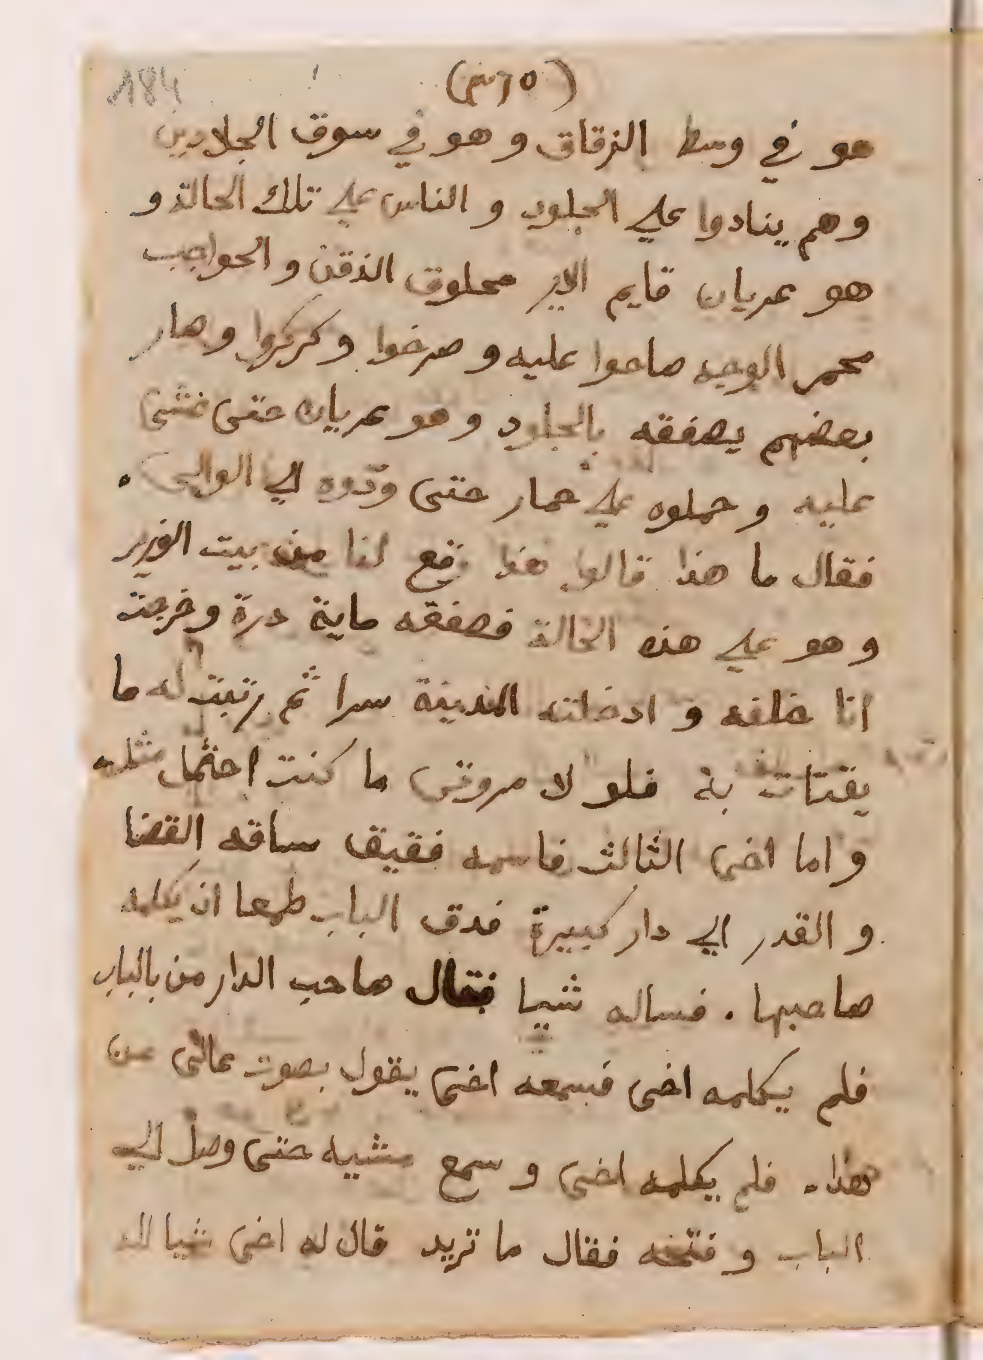 184
(٣٦٥)
هو في وسط الزقاق و هو في سوق الجلادين
و هم ينادوا علي الجلود و الناس علي تلك الحالة و
هو عريان قايم الاير محلوق الذقن و الحواجب
محمر الوجه صاحوا عليه و صرخوا و كركروا و صار
بعضهم يصفقه بالجلود و هو عريان حتى غشى
عليه و حملوه علي حمار حتى ودوه الي الوالي .
فقال ما هذا قالوا هذا وقع لنا من بيت الوزير
و هو علي هذه الحالة فصفقه ماية درة و خرجت
انا خلفه و ادخلته المدينة سرا ثم رتبت له ما
يقتات به فلو لا مروتى ما كنت احتمل مثله
و اما اخى الثالث فاسمه فقيق ساقه القضا
و القدر الي دار كبيرة فدق الباب طمعا ان يكلمه
صاحبها . فساله شيا فقال صاحب الدار من بالباب
فلم يكلمه اخى فسمعه اخى يقول بصوت عالى من
هذا . فلم يكلمه اخى و سمع مشيه حتى وصل الي
الباب و فتحه فقال ما تريد قال له اخى شيا لله